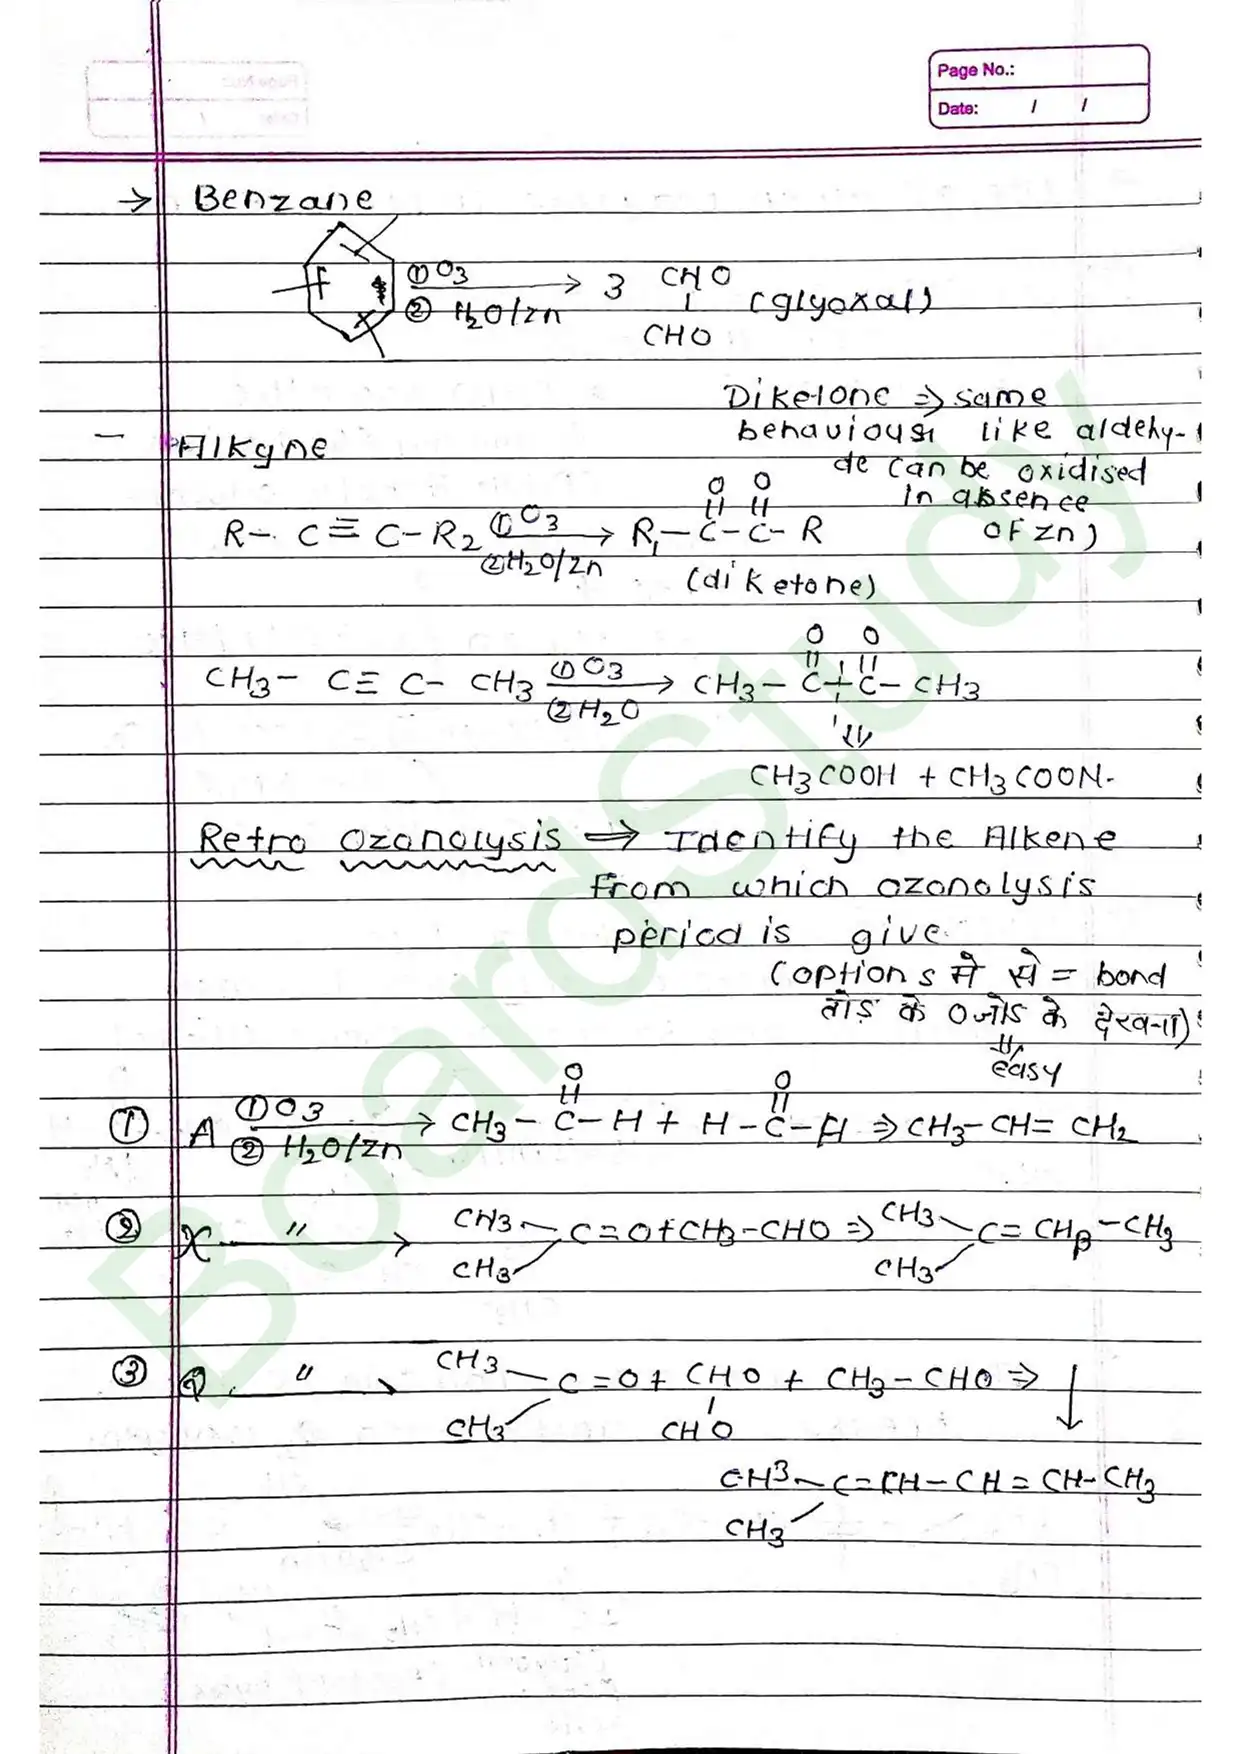 Page No.:
Date: / /
→ Benzane
① O3
② H2O/Zn
→ 3 CHO
CHO
(glyoxal)
Diketone ⇒ same
behaviour like aldehy-
de can be oxidised
in absence
of Zn)
- Alkyne
R- C ≡ C- R2 ① O3 ② H2O/Zn → R1- C - C - R
O O
(diketone)
CH3- C≡ C- CH3 ① O3 ② H2O → CH3- C + C- CH3
O O
CH3COOH + CH3COON-
Retro Ozonolysis ⇒ Identify the Alkene
From which ozonolysis
period is give
(options मे से = bond
तोड़ के O जोड़ के देखना)
easy
① A ① O3 ② H2O/Zn → CH3- C- H + H - C - H ⇒ CH3- CH= CH2
O O
② X " → CH3 CH3 C=O+CH3-CHO ⇒ CH3 CH3 C= CH -CH3
③ " → CH3 CH3 C=O+ CHO CHO + CH3- CHO ⇒ ↓
CH3 CH3 C=CH- CH = CH- CH3
BoardStudy